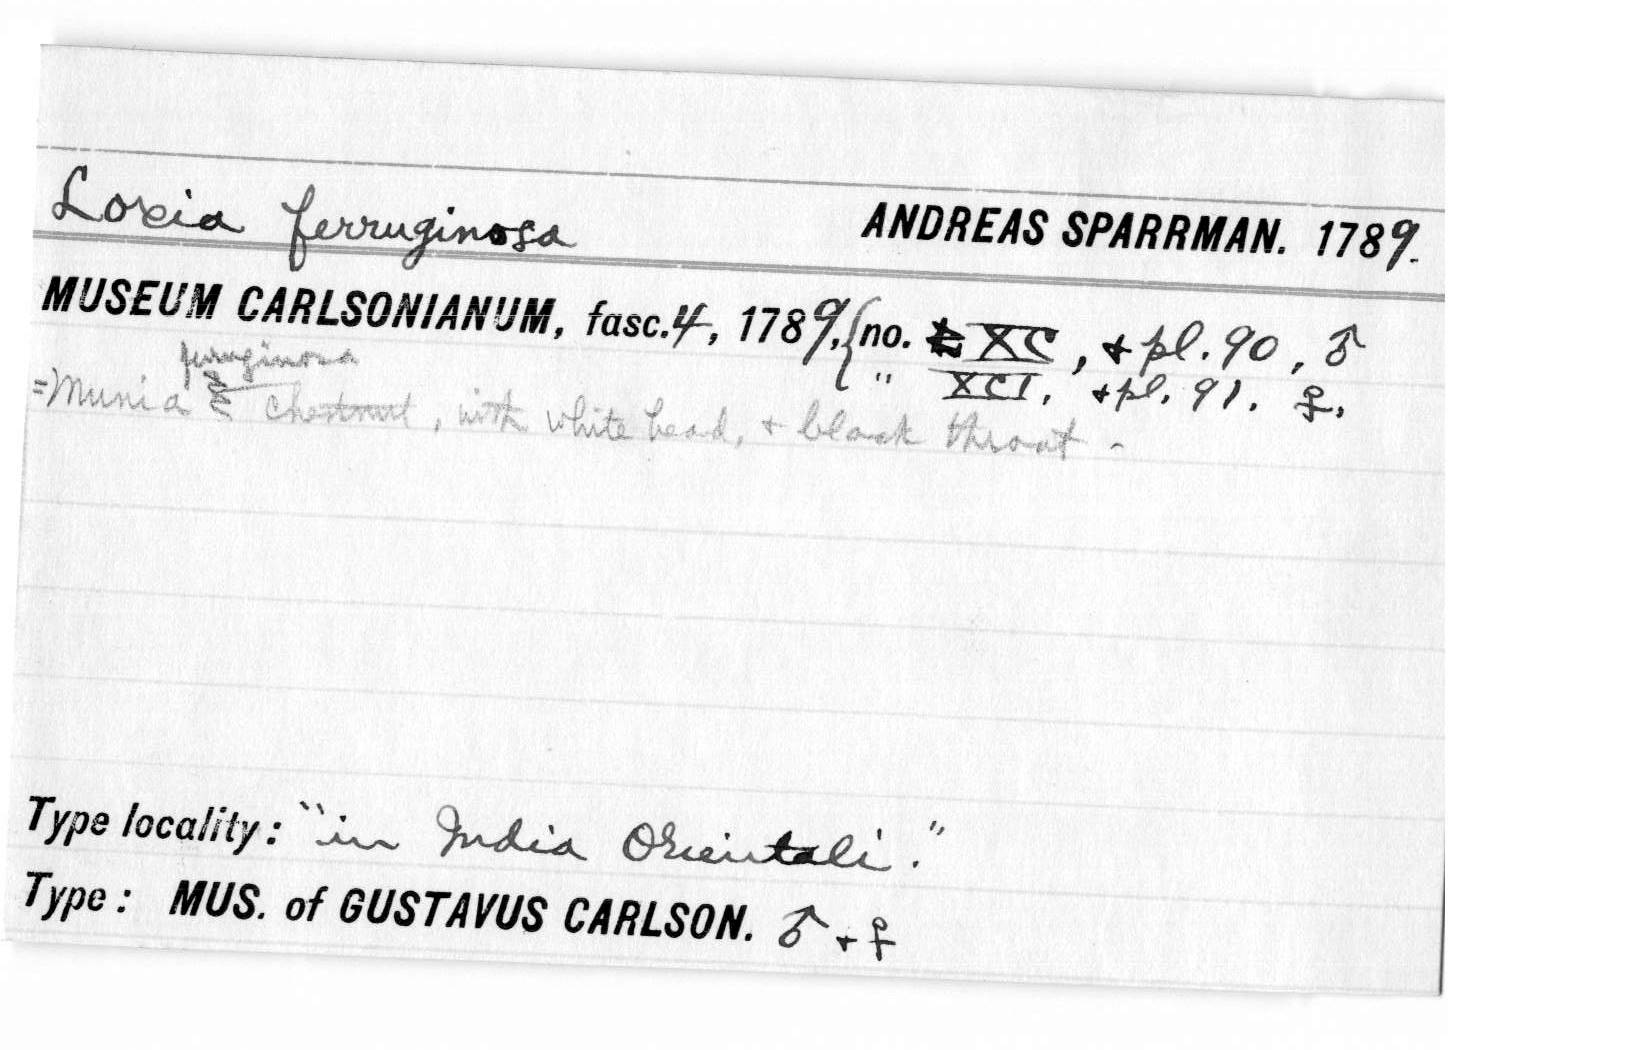 Loxia ferruginosa ANDREAS SPARRMAN. 1789.
MUSEUM CARLSONIANUM, fasc. 4, 1789, { no. XC, + pl. 90, ♂
" XCI, + pl. 91. ♀,
ferruginosa
=Munia chestnut, with white head, + black throat -
Type locality: "in India Orientali."
Type: MUS. of GUSTAVUS CARLSON. ♂ + ♀